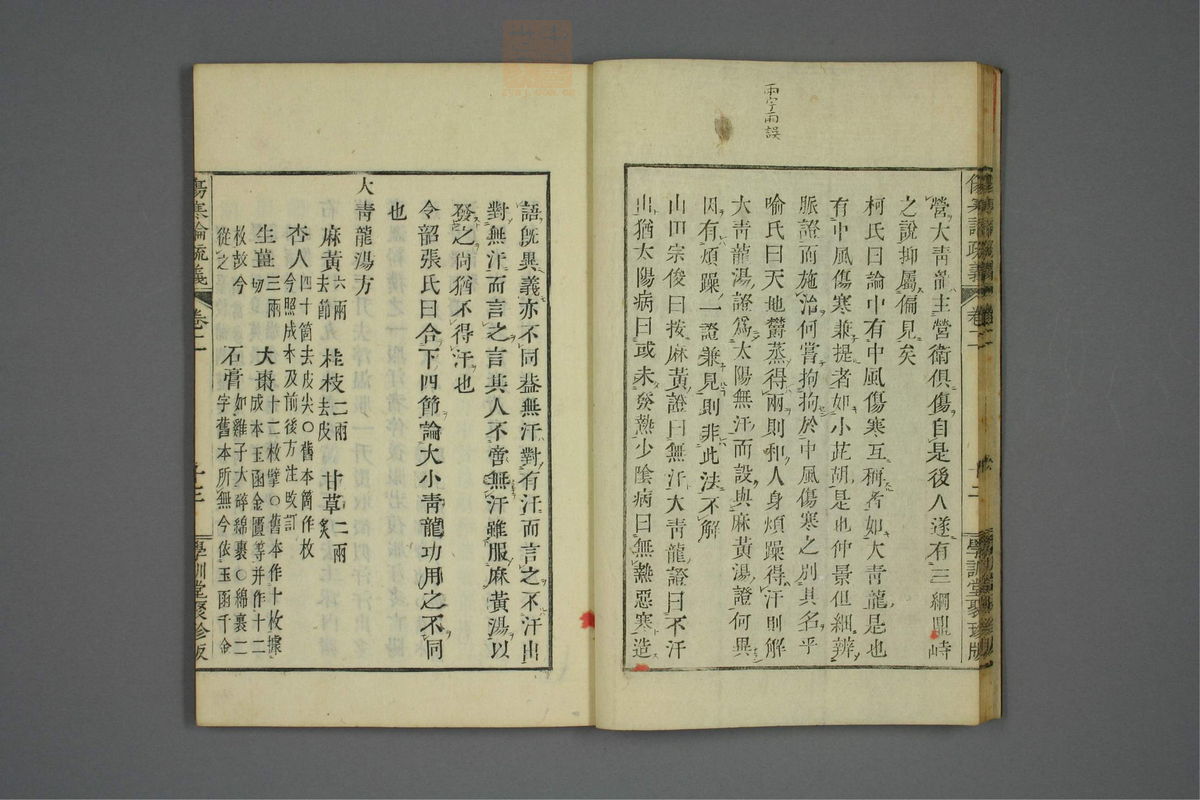 兩字雨誤
營大靑龍主營衛俱傷自是後人遂有三綱鼎峙
之說抑屬偏見矣
柯氏曰論中有中風傷寒互稱者如大靑龍是也
有中風傷寒兼提者如小茈胡是也仲景但細辨
脈證而施治何嘗拘拘於中風傷寒之別其名乎
喻氏曰天地鬱蒸得兩則和人身煩躁得汗則解
大靑龍湯證爲太陽無汗而設與麻黃湯證何異
因有煩躁一證兼見則非此法不解
山田宗俊曰按麻黃證曰無汗大靑龍證曰不汗
出猶太陽病曰或未發熱少陰病曰無熱惡寒造
傷寒論疏義
卷二
學訓堂聚珍版
語旣異義亦不同葢無汗對有汗而言之不汗出
對無汗而言之言其人不啻無汗雖服麻黃湯以
發之尙猶不得汗也
令韶張氏曰合下四節論大小靑龍功用之不同
也
大靑龍湯方
麻黃六兩去節 桂枝二兩去皮 甘草二兩炙
杏人四十箇去皮尖○舊本箇作枚今照成本及前後方注改訂
生薑三兩切 大棗十二枚擘○舊本作十枚據成本玉函金匱等并作十二
枚故今從之 石膏如雞子大碎綿裹○綿裹二字舊本所無今依玉函千金
傷寒論疏義
卷二
十三
學訓堂聚珍版